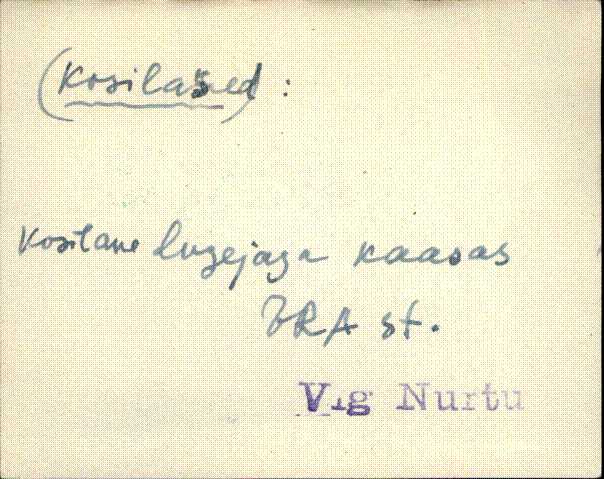 (Kosilased) :
Kosilane lugejaga kaasas
ERA st.
Vig Nurtu